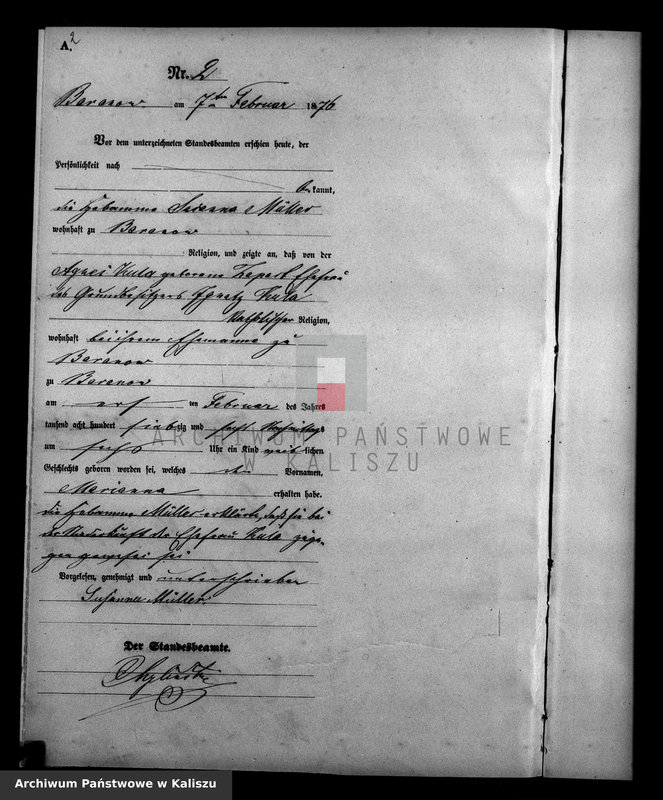 A. 2
Nr. 2
Baranow am 7ten Februar 1876
Vor dem unterzeichneten Standesbeamten erschien heute, der
Persönlichkeit nach
bekannt,
die Hebamme Susanna Müller
wohnhaft zu Baranow
Religion, und zeigte an, daß von der
geborene Ehefrau
des Grundbesitzers Ignatz Kula
katholischer Religion,
wohnhaft bei ihrem Ehemanne zu
Baranow
zu Baranow
am ersten Februar des Jahres
tausend acht hundert siebzig und sechs Nachmittags
um sechs Uhr ein Kind weiblichen
Geschlechts geboren worden sei, welches den Vornamen,
Marianna erhalten habe.
die Hebamme Müller erklärte, daß sie bei
der Niederkunft der Ehefrau Kula zuge-
gen gewesen sei
Vorgelesen, genehmigt und unterschrieben
Susanna Müller.
Der Standesbeamte.
ARCHIWUM PAŃSTWOWE
W KALISZU
Archiwum Państwowe w Kaliszu